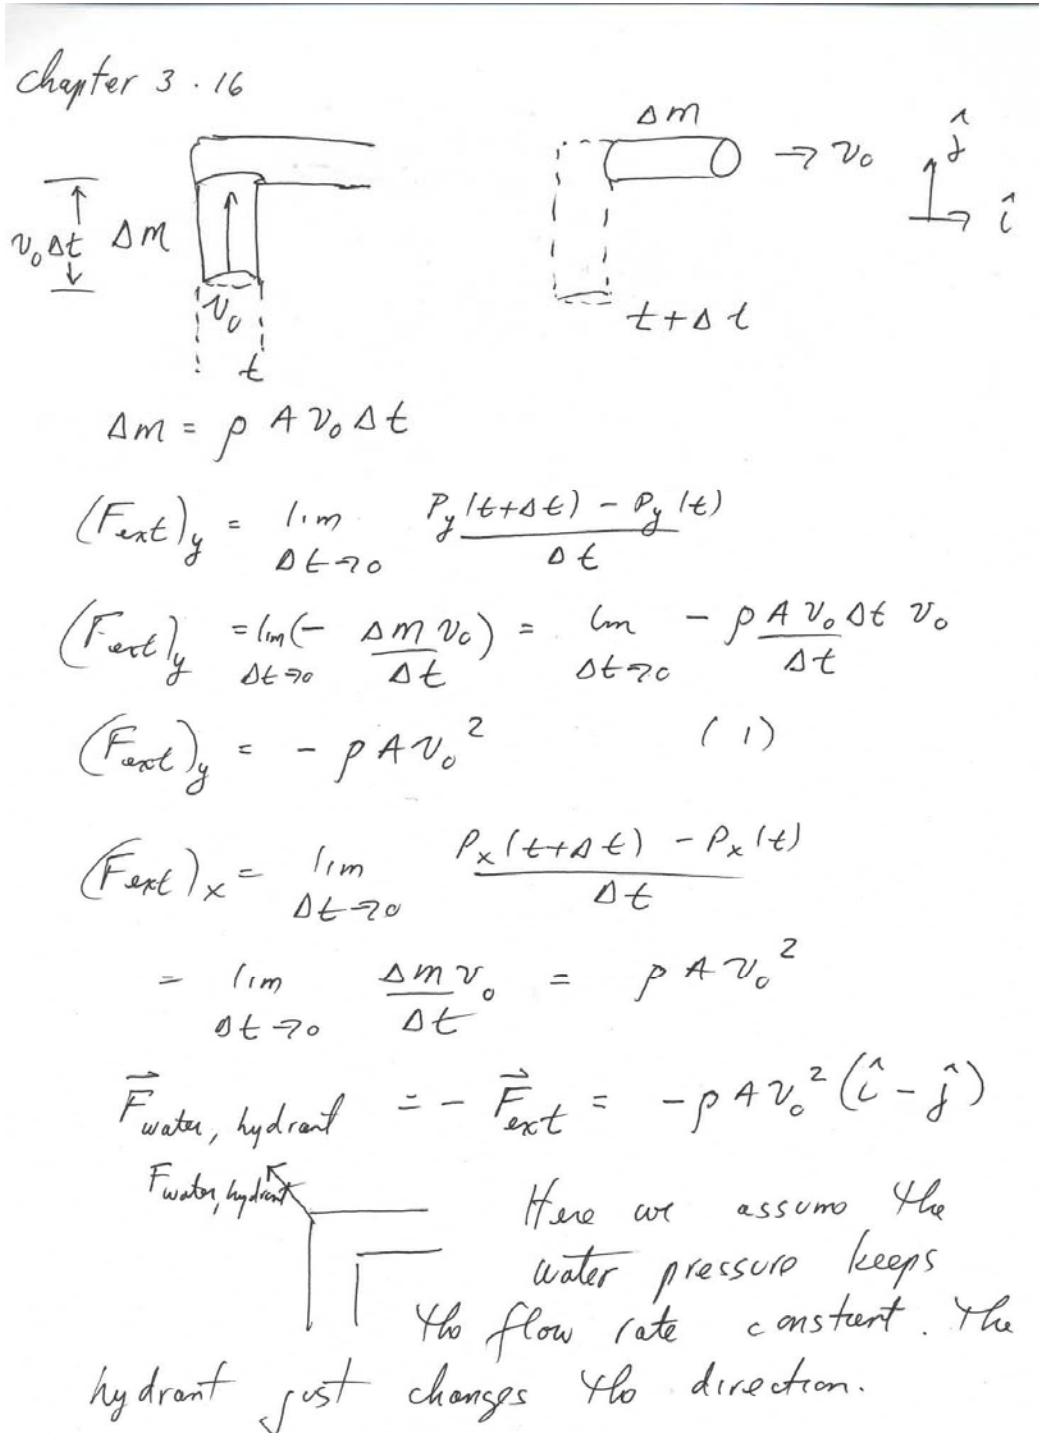 Chapter 3.16
Δm
→ v₀
ĵ
î
v₀Δt
Δm
v₀
t
t+Δt
Δm = ρ A v₀ Δt
(F_ext)_y = lim_{Δt→0} (P_y(t+Δt) - P_y(t))/Δt
(F_ext)_y = lim_{Δt→0} (- Δm v₀/Δt) = lim_{Δt→0} - ρ A v₀ Δt v₀/Δt
(F_ext)_y = - ρ A v₀² (1)
(F_ext)_x = lim_{Δt→0} (P_x(t+Δt) - P_x(t))/Δt
= lim_{Δt→0} Δm v₀/Δt = ρ A v₀²
F⃗_water, hydrant = - F⃗_ext = -ρ A v₀² (î - ĵ)
F_water, hydrant
Here we assume the
water pressure keeps
the flow rate constant. The
hydrant just changes the direction.